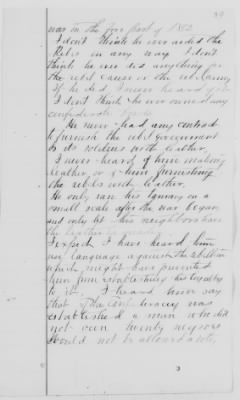 was in the fore part of 1862
I don't think he ever aided the
Rebels in any way. I don't
think he ever did anything for
the rebel cause or the reb Army
If he did I never heard of it
I don't think he ever owned any
confederate bonds
He never had any contract
to furnish the rebel government
or its soldiers with leather.
I never heard of him making
leather, or of him furnishing
the rebels with leather.
He only ran his tannery on a
small scale after the war began
and only let his neighbors have
the leather he made
I have heard him
use language against the rebellion
which might have prevented
him from establishing his loyalty
to it. I heard him say
that if the Confederacy was
established a man who did
not own twenty negroes
would not be allowed a vote,